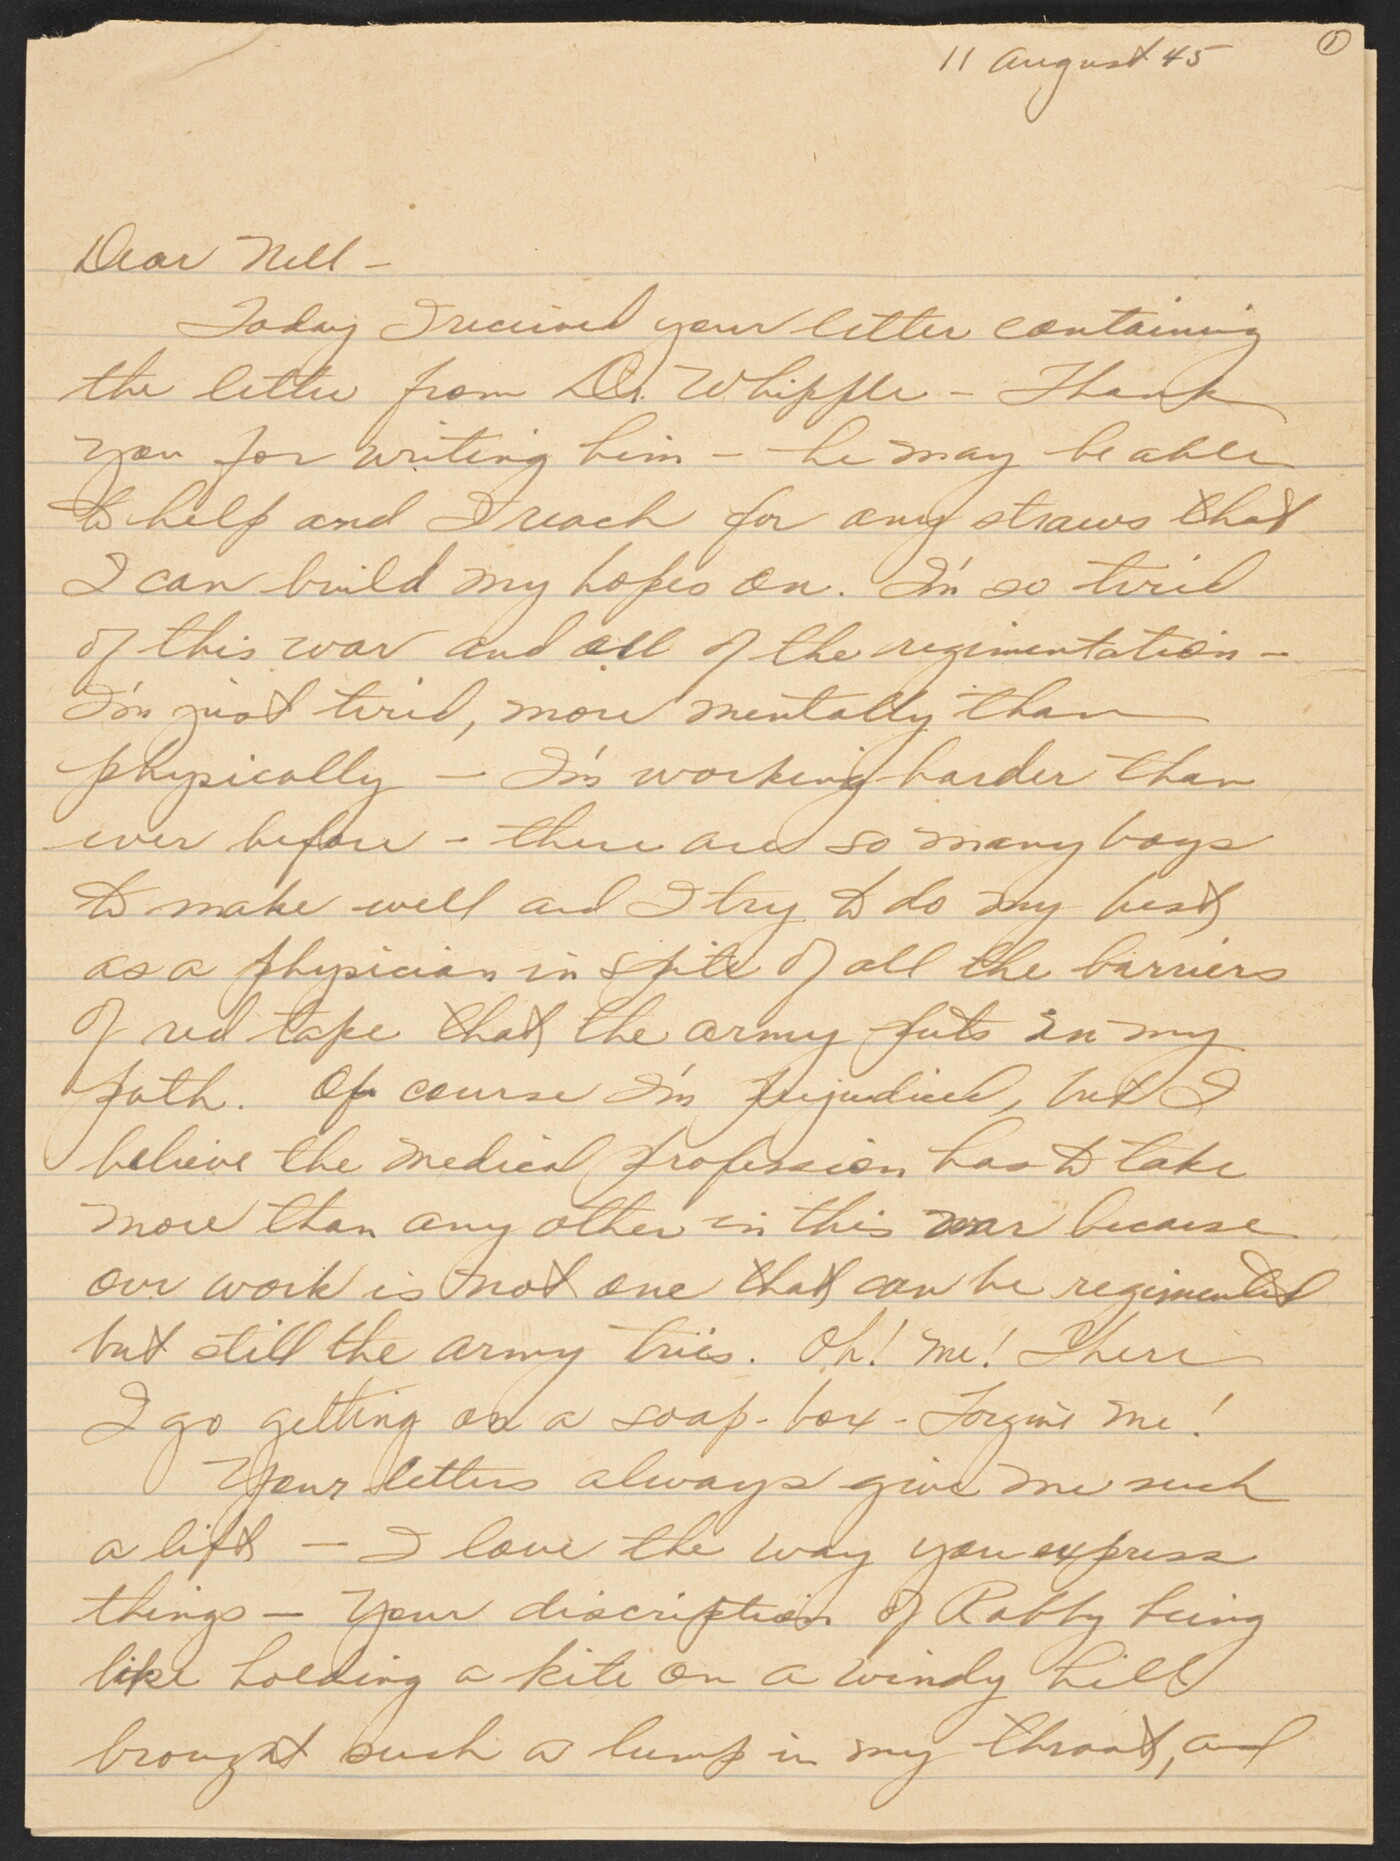 11 August 45
①
Dear Nell —
Today I received your letter containing
the letter from Dr. Whipple — Thank
you for writing him — he may be able
to help and I reach for any straws that
I can build my hopes on. I'm so tired
of this war and all of the regimentation —
I'm just tired, more mentally than
physically — I'm working harder than
ever before — there are so many boys
to make well and I try to do my best
as a physician in spite of all the barriers
of red tape that the army puts in my
path. Of course I'm prejudiced, but I
believe the medical profession has to take
more than any other in this war because
our work is not one that can be regimented
but still the army tries. Oh! Me! There
I go getting on a soap-box — Forgive me!
Your letters always give me such
a lift — I love the way you express
things — Your discription of Robby being
like holding a kite on a windy hill
brought such a lump in my throat, and